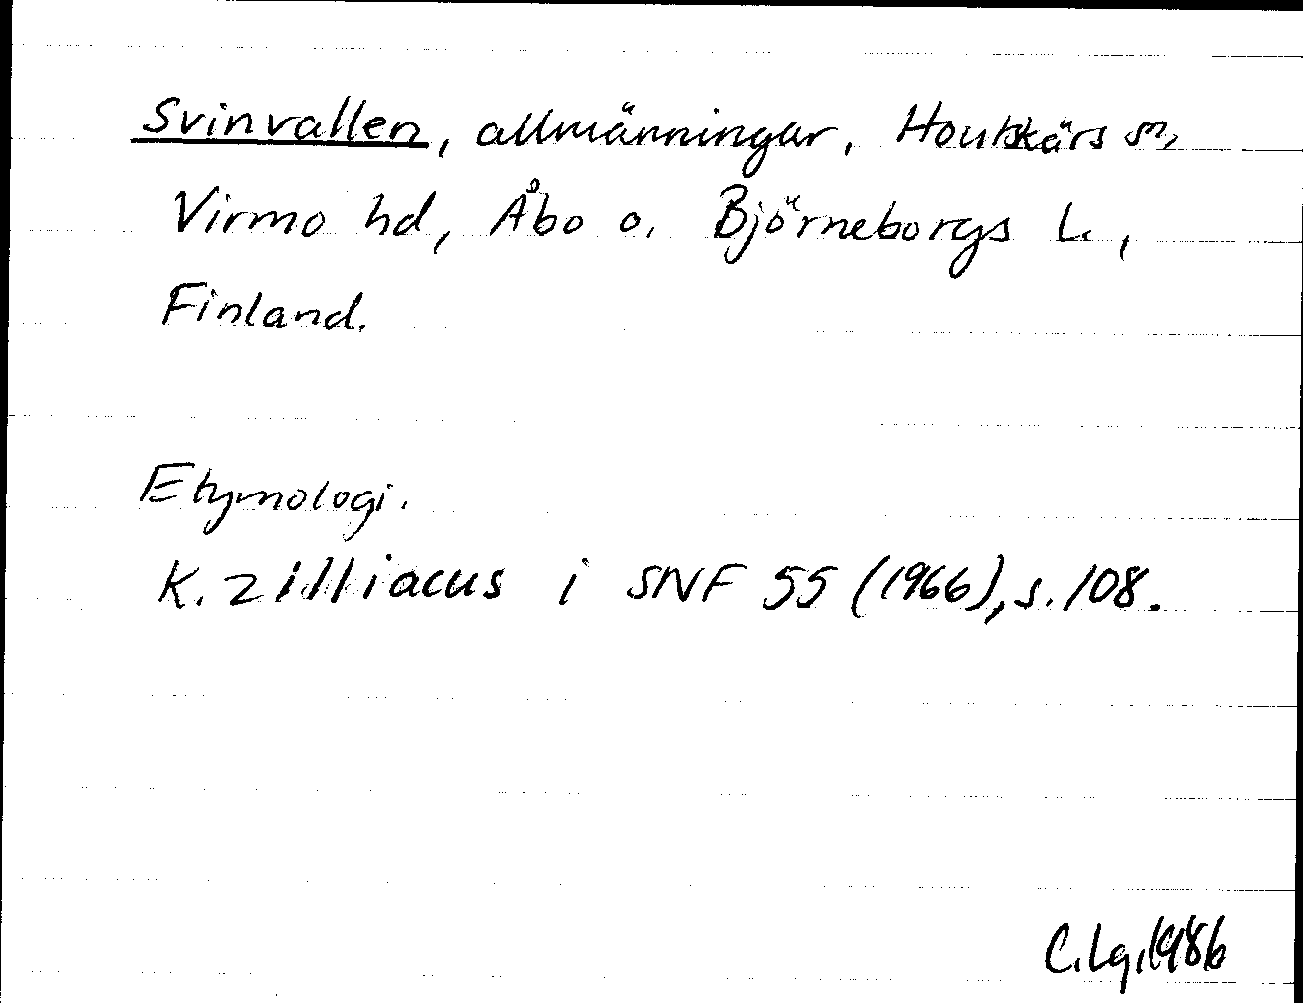 Svinvallen, allmänningar, Houtskärs sn,
Virmo hd, Åbo o. Björneborgs L.,
Finland.
Etymologi.
K. Zilliacus i SNF 55 (1966), s. 108.
C. Lg. 1986